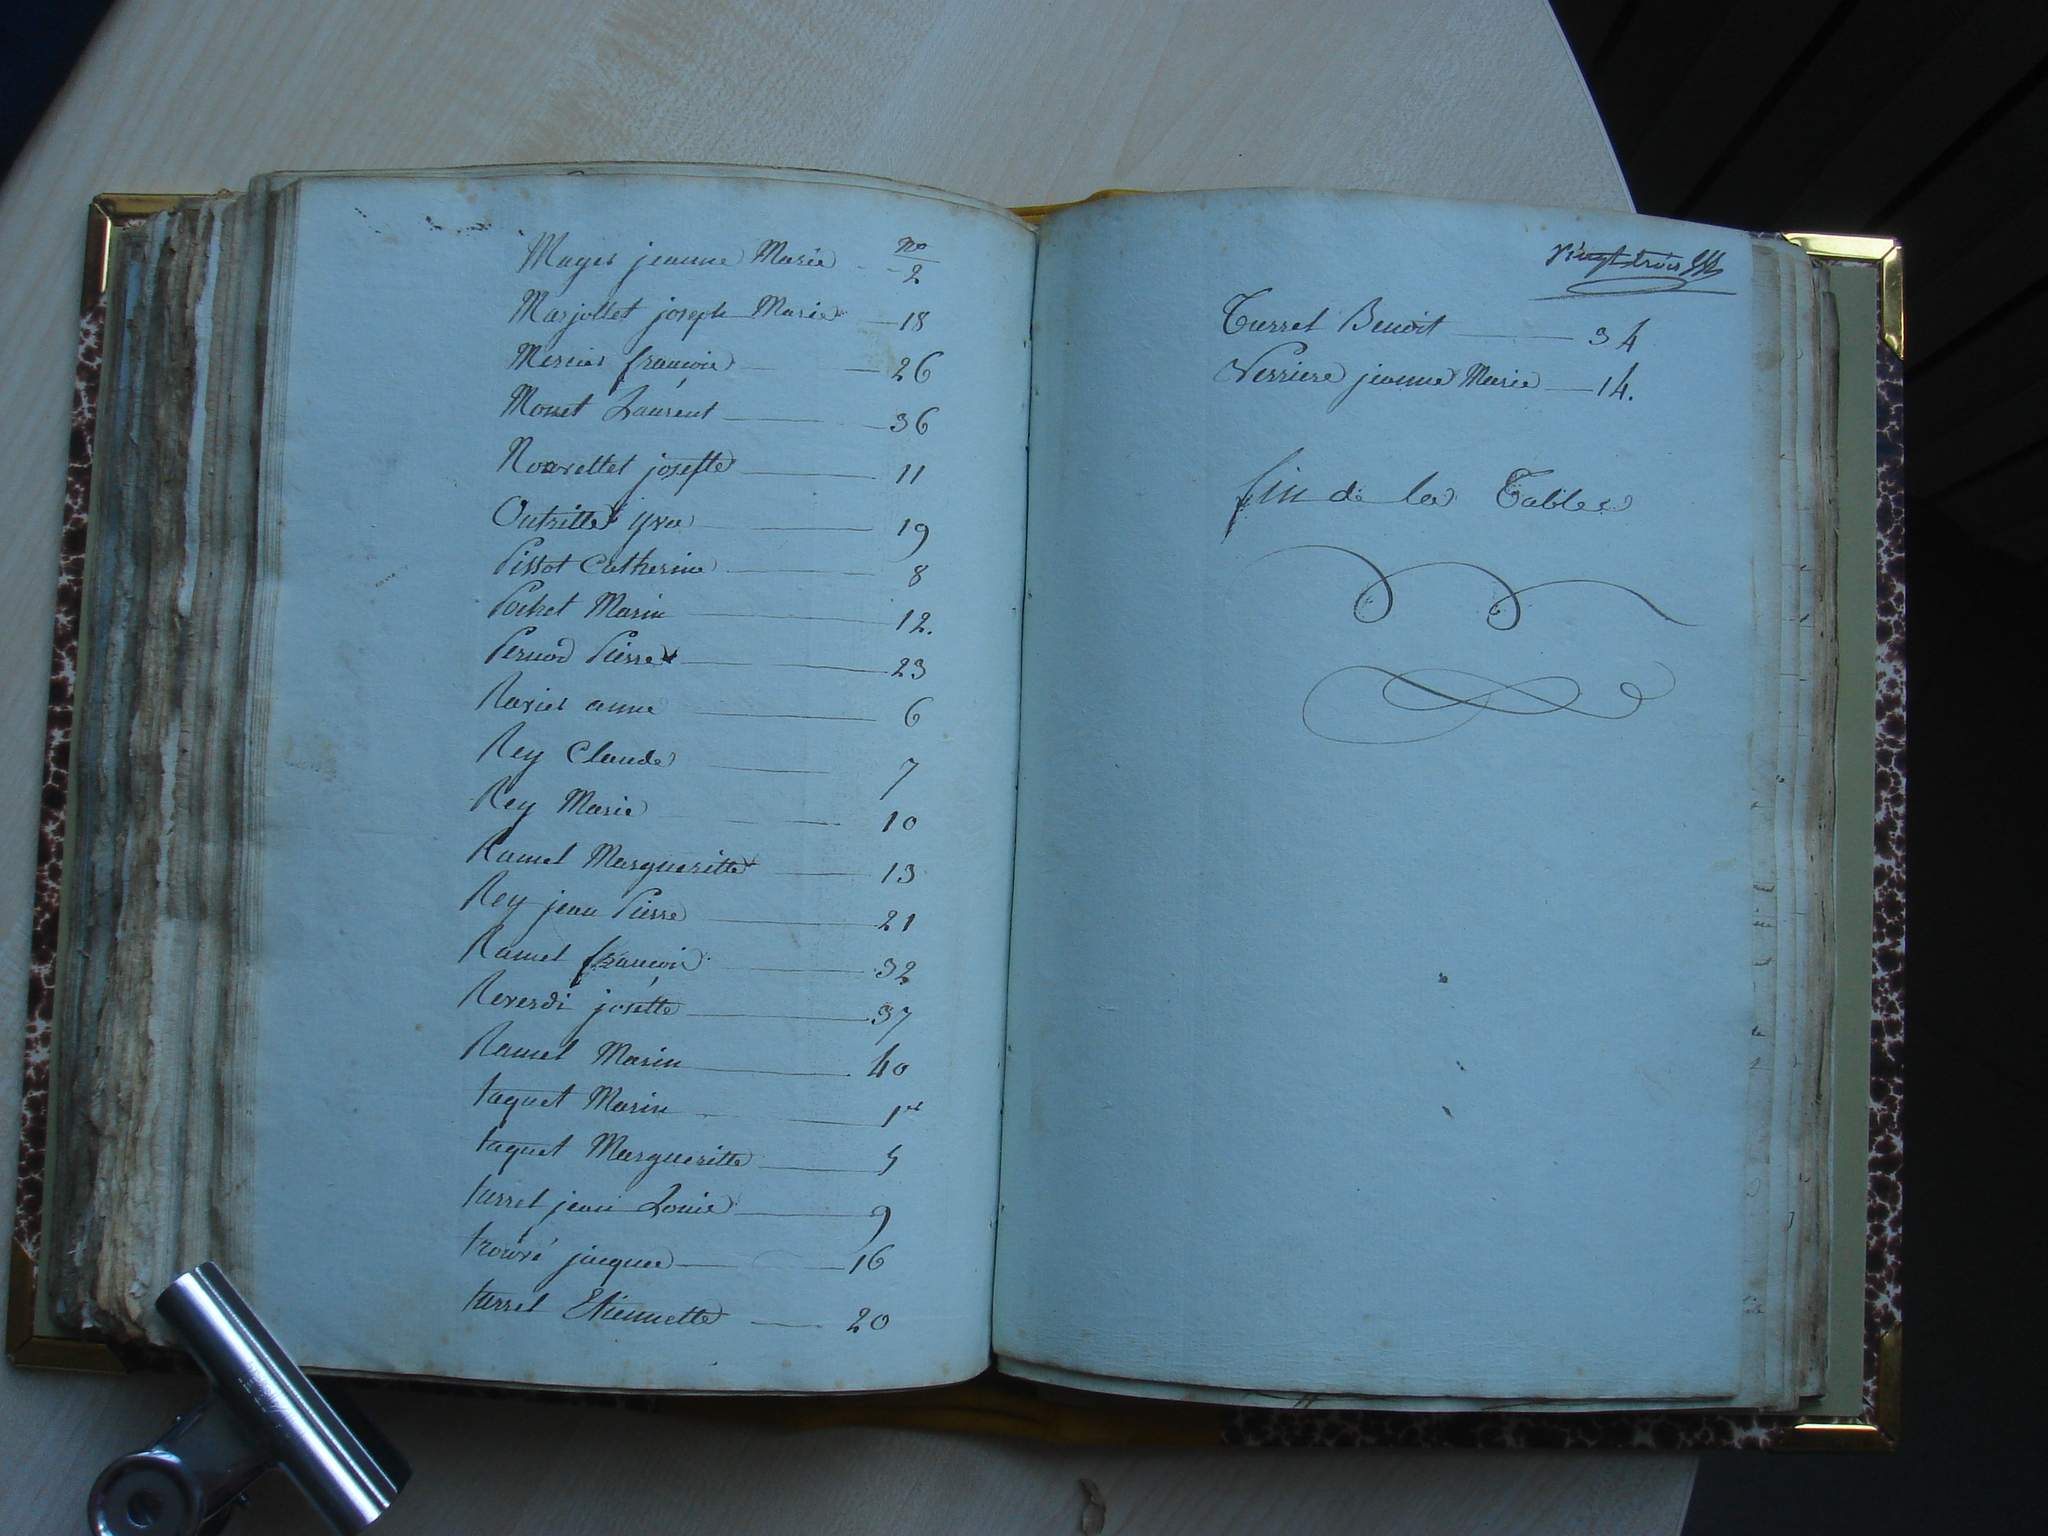 n.o
Mayer jeanne Marie 2
Marjollet joseph Marie 18
Mercier françois 26
Monet Laurent 36
Nouvellet josette 11
Outritte yves 19
Pissot Catherine 8
Pochet Marin 12.
Pernod Pierre 23
Ravier anne 6
Rey Claude 7
Rey Marie 10
Ramel Margueritte 13
Rey jean Pierre 21
Ramel françois 32
Reverdi josette 37
Ramel Marin 40
taquet Marin 1er
taquet Margueritte 5
turrel jean Louis 9
trouvé jacques 16
turrel Etiennette 20
vingt trois
Turrel Benoit 34
Verriere jeanne Marie 14.
fin de la Table